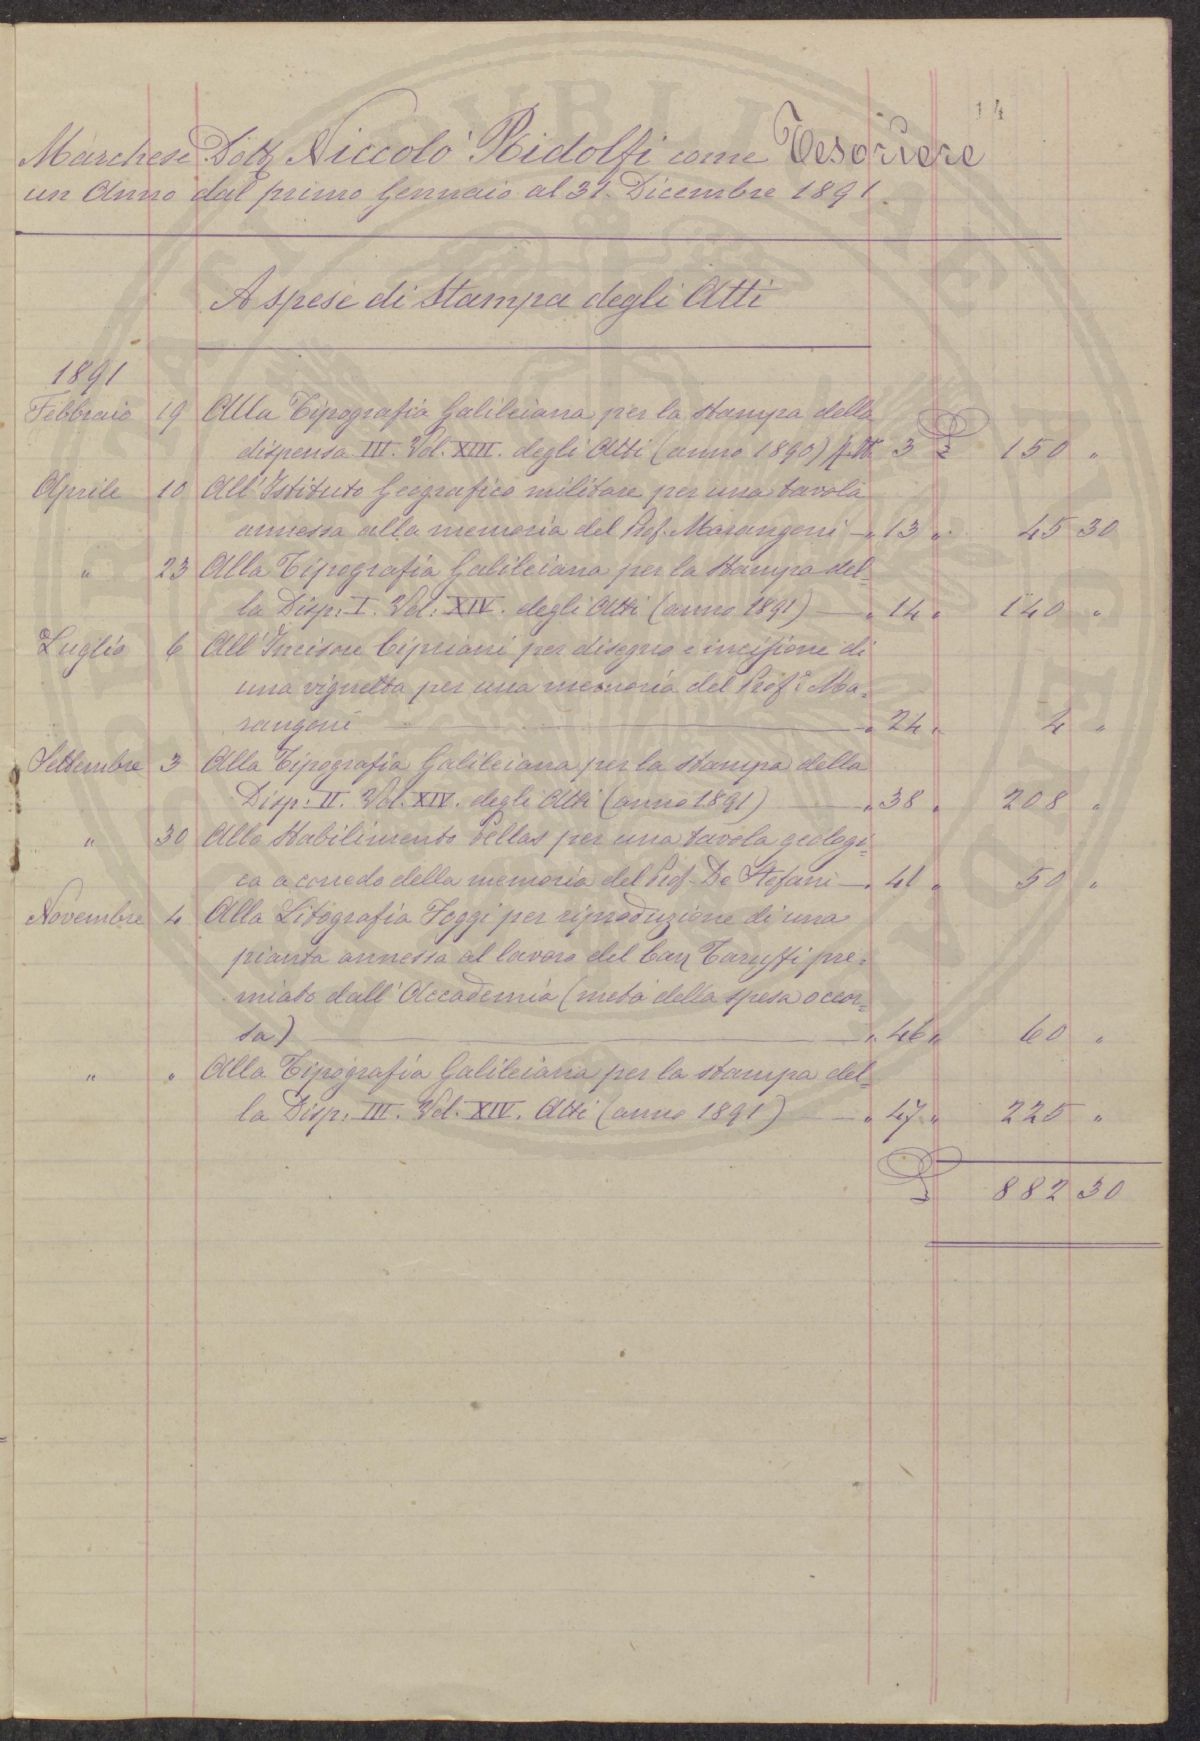 14
Marchese Dott. Niccolò Ridolfi come Tesoriere
un Anno dal primo Gennaio al 31. Dicembre 1891.
A spese di Stampa degli Atti
1891
Febbraio 19 Alla Tipografia Galileiana per la stampa della
dispensa III. Vol. XIII. degli Atti (anno 1890) 3 £ 150 "
Aprile 10 All'Istituto Geografico militare per una tavola
annessa alla memoria del Prof. Marangoni — " 13 " 45 30
" 23 Alla Tipografia Galileiana per la stampa del=
la Disp: I. Vol: XIV. degli Atti (anno 1891) — " 14 " 140 "
Luglio 6 All'Incisore Cipriani per disegno e incisione di
una vignetta per una memoria del Prof.e Ma=
rangoni — " 24 " 4 "
Settembre 3 Alla Tipografia Galileiana per la stampa della
Disp: II. Vol. XIV. degli Atti (anno 1891) — " 38 " 208 "
" 30 Allo Stabilimento Pellas per una tavola geologi=
ca a corredo della memoria del Prof. De Stefani — " 41 " 50 "
Novembre 4 Alla Litografia Foggi per riproduzione di una
pianta annessa al lavoro del Cav. Taruffi pre=
miato dall'Accademia (metà della spesa occor=
sa) — " 46 " 60 "
" " Alla Tipografia Galileiana per la stampa del=
la Disp: III. Vol. XIV. Atti (anno 1891) — " 47 " 225 "
£ 882 30